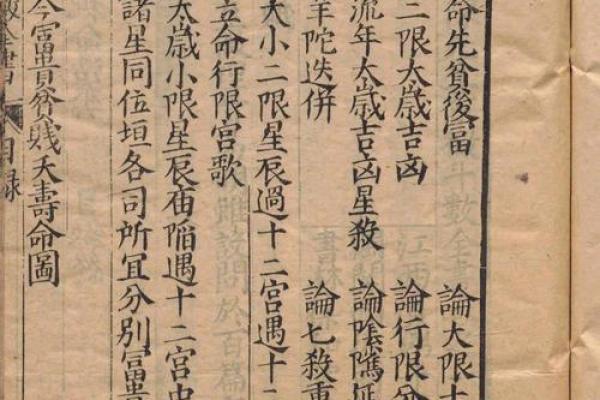 命先貧後富　論大限十
二限太歲吉凶　論行限分
流年太歲吉凶星殺　論陰隲延
羊陀迭併　論七殺重
大小二限星辰過十二宮遇十二
立命行限宮歌
太歲小限星辰廟陷遇十二宮中
諸星同位垣各司所宜分別富貴
今富貴貧賤夭壽命圖
全書　目錄